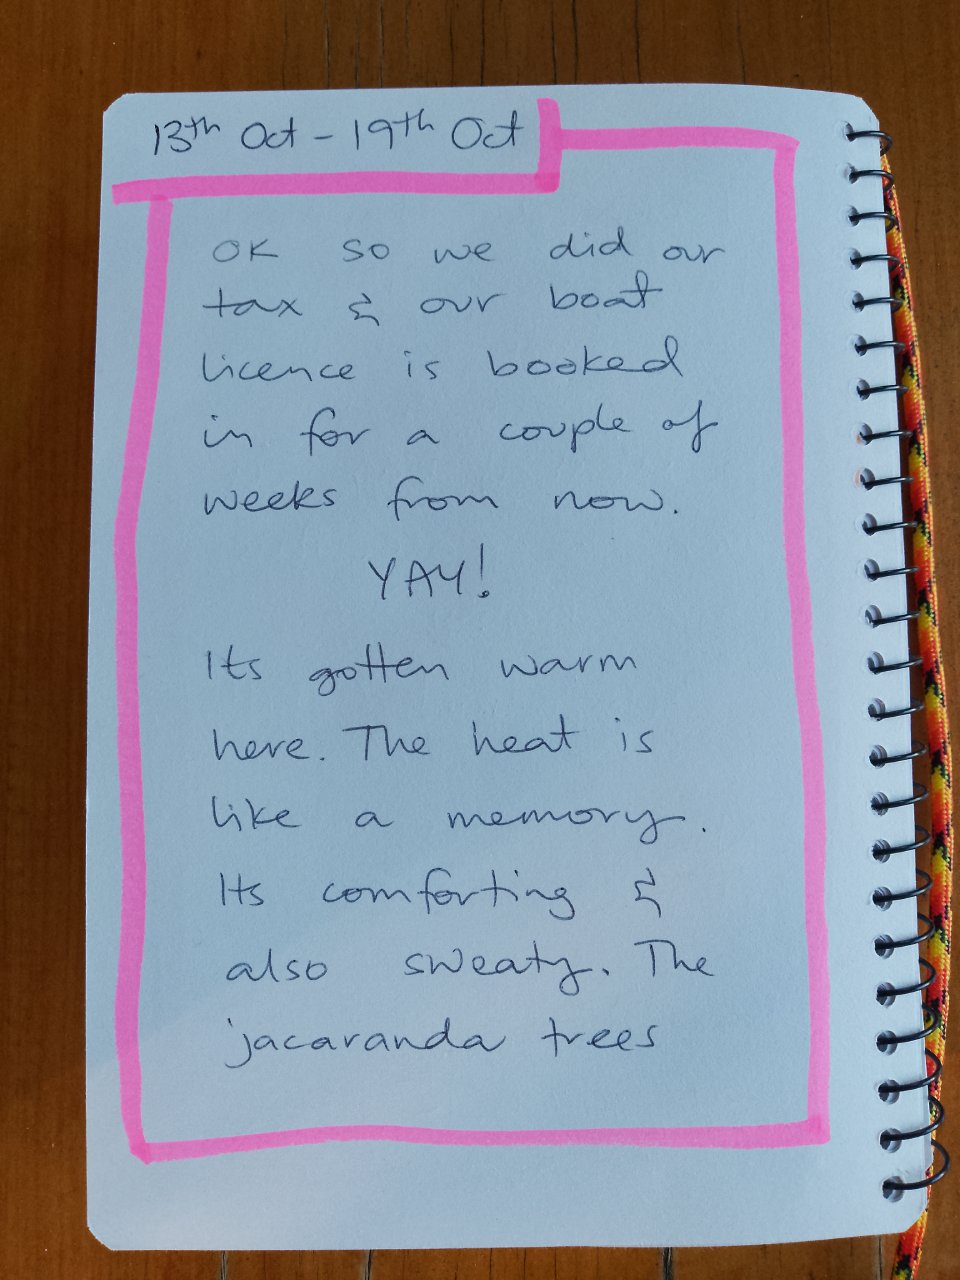 13th Oct - 19th Oct
OK so we did our
tax & our boat
licence is booked
in for a couple of
weeks from now.
YAY!
Its gotten warm
here. The heat is
like a memory.
Its comforting &
also sweaty. The
jacaranda trees